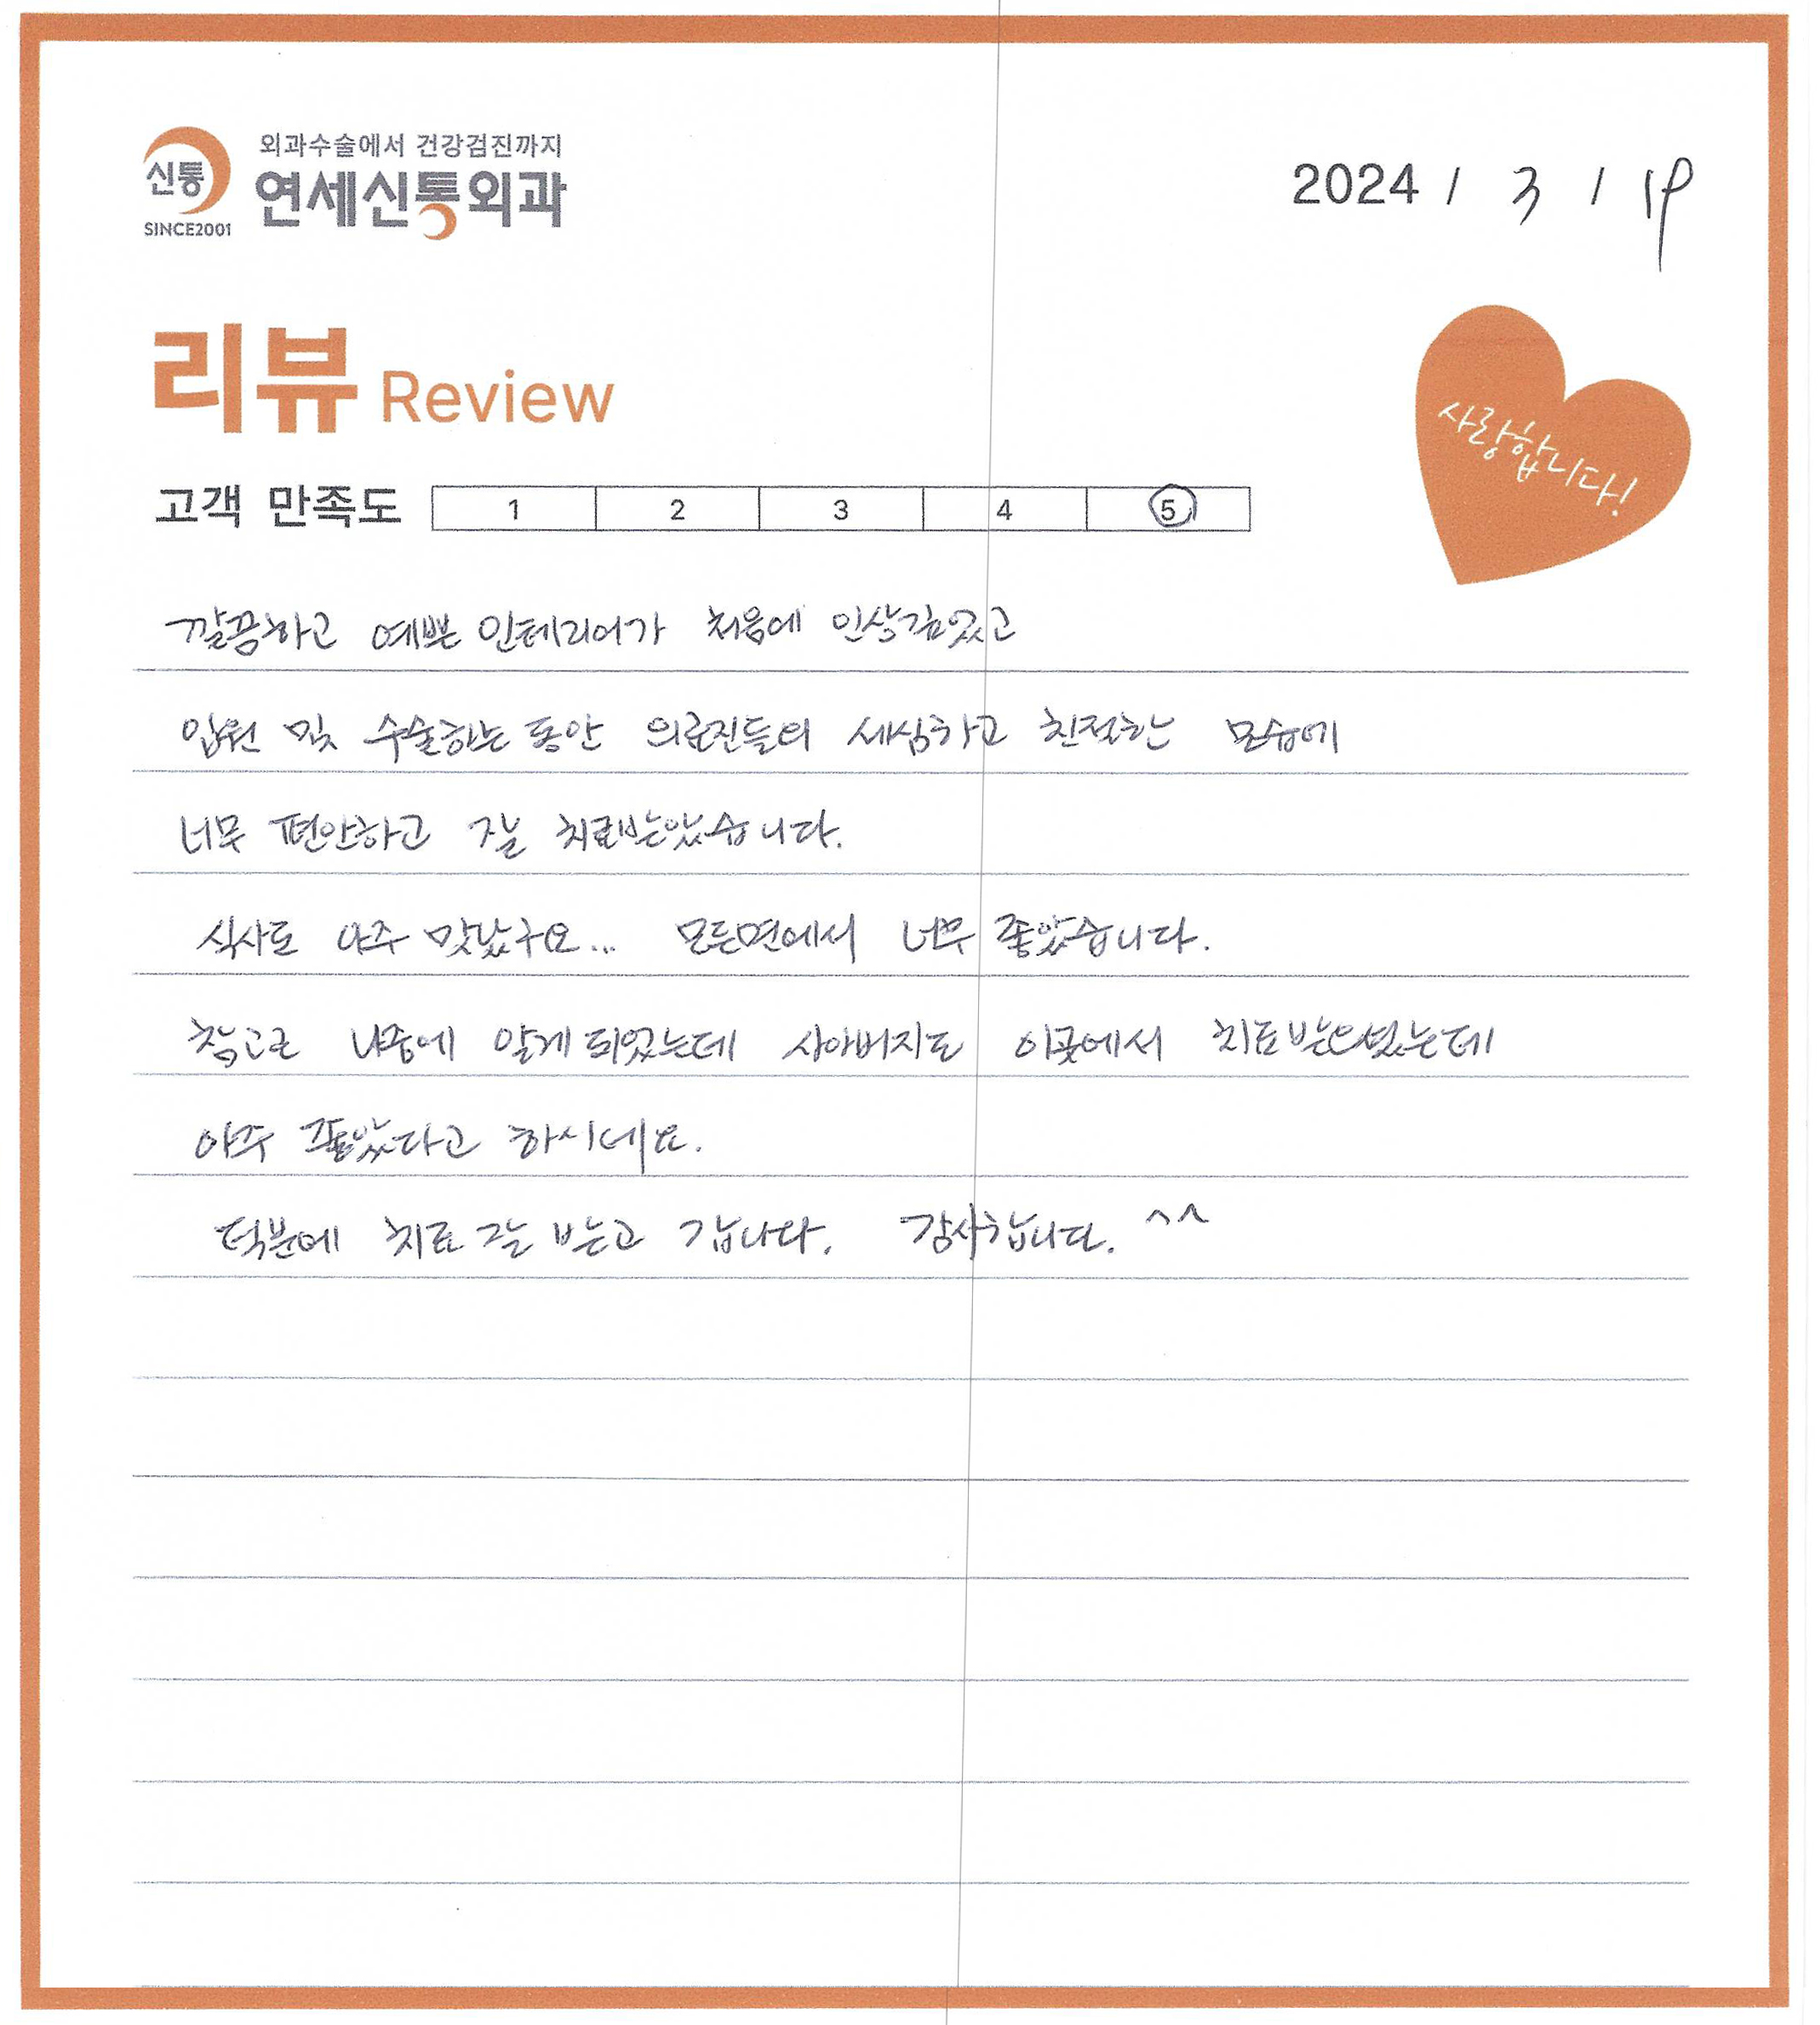 신통
SINCE2001
외과수술에서 건강검진까지
연세신통외과
2024 / 3 / 19
리뷰 Review
사랑합니다!
고객 만족도 1 2 3 4 5
깔끔하고 예쁜 인테리어가 처음에 인상깊었고
입원 및 수술하는 동안 의료진들의 세심하고 친절한 모습에
너무 편안하고 잘 치료받았습니다.
식사도 아주 맛났구요... 모든면에서 너무 좋았습니다.
참고로 나중에 알게 되었는데 시아버지도 이곳에서 치료받으셨는데
아주 좋았다고 하시네요.
덕분에 치료 잘 받고 갑니다. 감사합니다. ^^